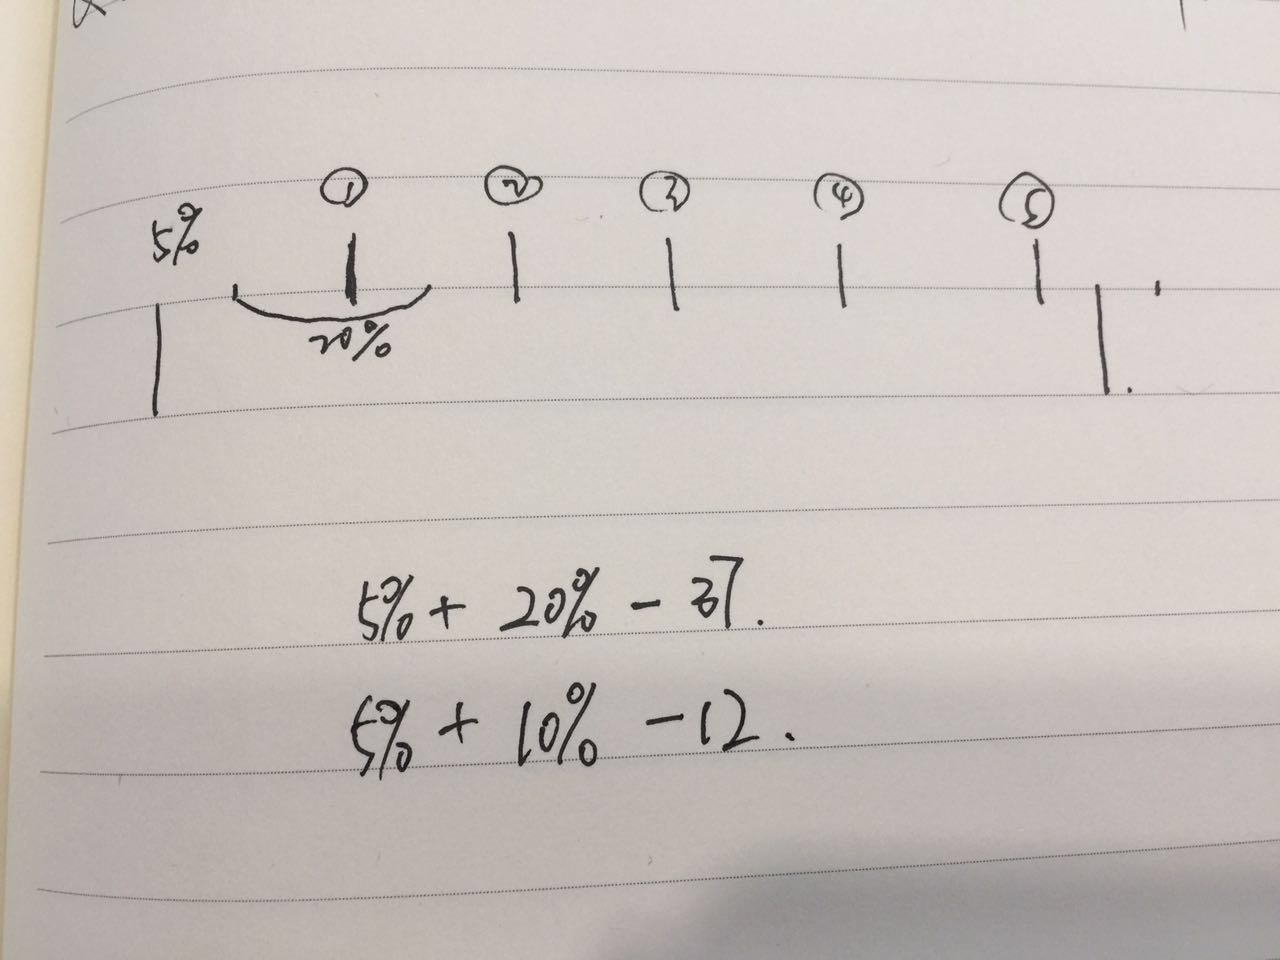 ① ② ③ ④ ⑤
5%
20%
5% + 20% - 37.
5% + 10% - 12.